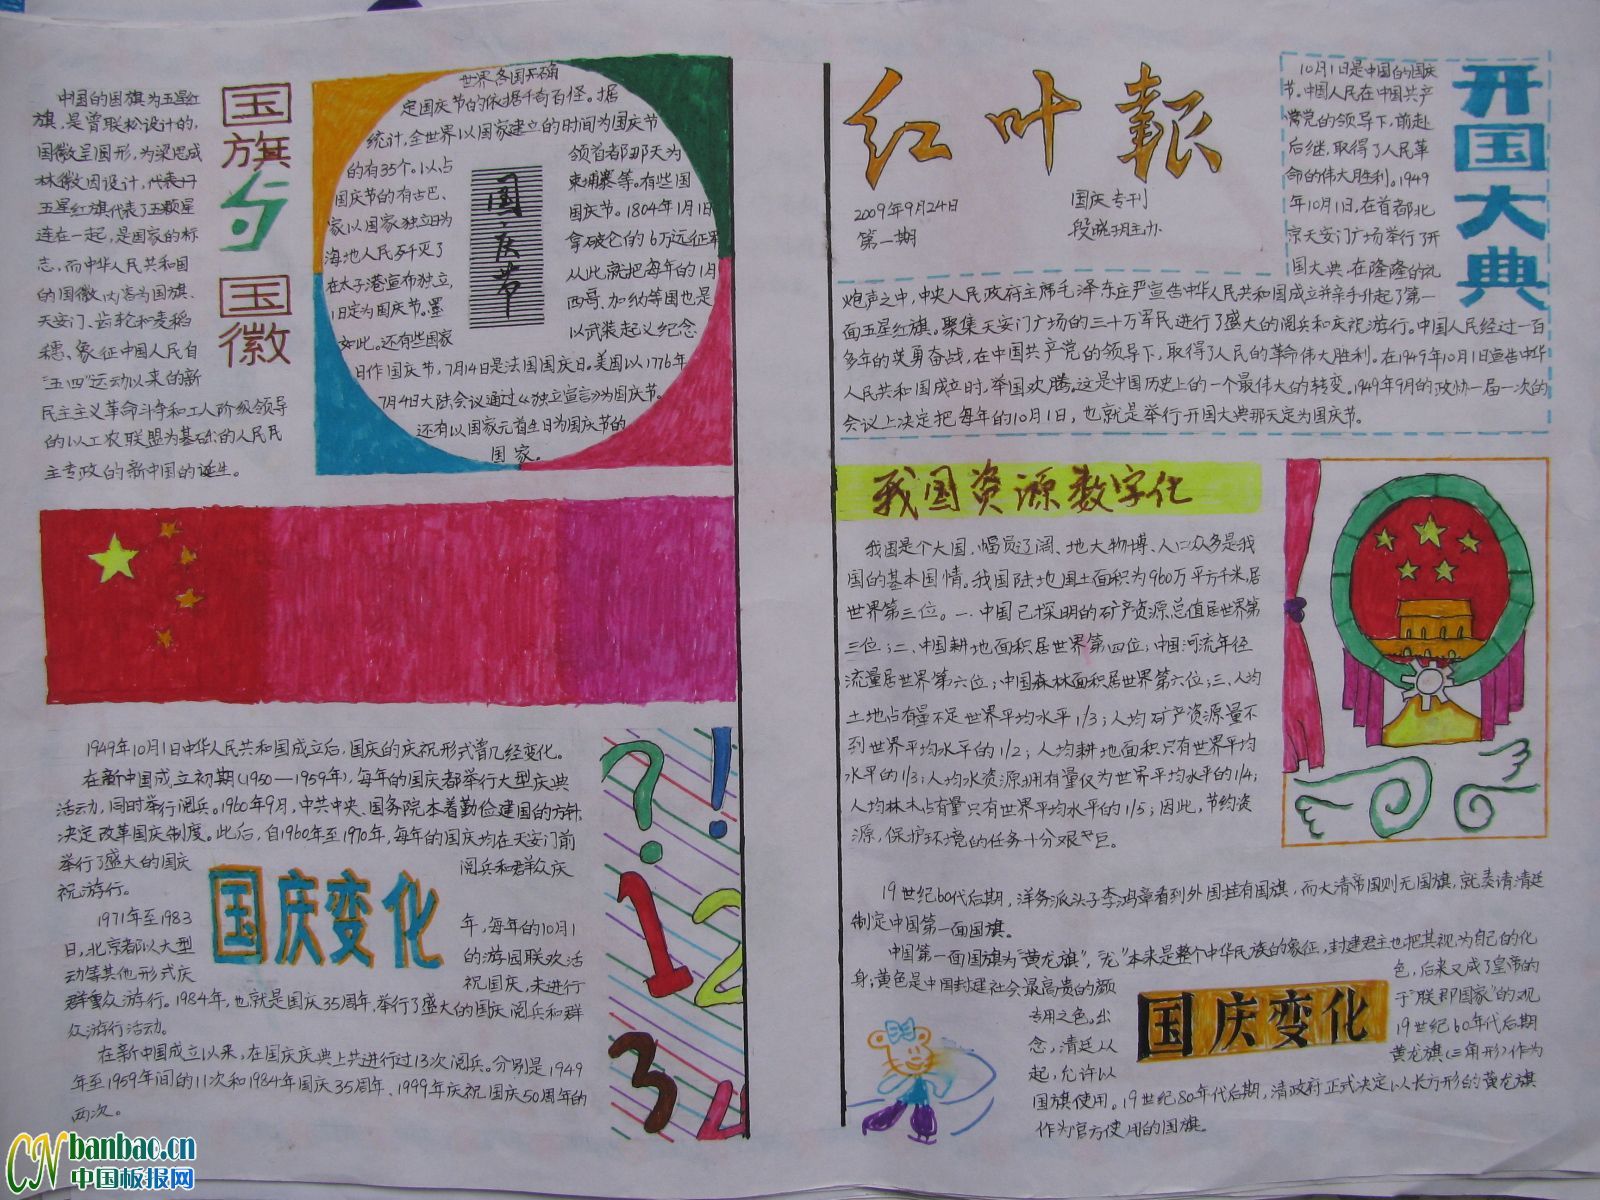 红叶報
2009年9月24日
第一期
国庆专刊
段晓玥主办
开国大典
10月1日是中国的国庆
节。中国人民在中国共产
党的领导下,前赴
后继,取得了人民革
命的伟大胜利。1949
年10月1日,在首都北
京天安门广场举行了开
国大典,在隆隆的礼
炮声之中,中央人民政府主席毛泽东庄严宣告中华人民共和国成立并亲手升起了第一
面五星红旗。聚集天安门广场的三十万军民进行了盛大的阅兵和庆祝游行。中国人民经过一百
多年的英勇奋战,在中国共产党的领导下,取得了人民的革命伟大胜利。在1949年10月1日宣告中华
人民共和国成立时,举国欢腾。这是中国历史上的一个最伟大的转变。1949年9月的政协一届一次的
会议上决定把每年的10月1日,也就是举行开国大典那天定为国庆节。
我国资源数字化
我国是个大国、幅员辽阔、地大物博、人口众多是我
国的基本国情。我国陆地国土面积为960万平方千米,居
世界第三位。一.中国已探明的矿产资源总值居世界第
三位;二、中国耕地面积居世界第四位;中国河流年径
流量居世界第六位;中国森林面积居世界第六位;三、人均
土地占有量不足世界平均水平1/3;人均矿产资源量不
到世界平均水平的1/2;人均耕地面积只有世界平均
水平的1/3;人均水资源拥有量仅为世界平均水平的1/4;
人均林木占有量只有世界平均水平的1/5;因此,节约资
源,保护环境的任务十分艰巨。
19世纪60代后期,洋务派头子李鸿章看到外国挂有国旗,而大清帝国则无国旗,就奏请清廷
制定中国第一面国旗。
中国第一面国旗为"黄龙旗","龙"本来是整个中华民族的象征,封建君主也把其视为自己的化
身;黄色是中国封建社会最高贵的颜
色,后来又成了皇帝的
专用之色。出
于"联邦国家"的观
念,清廷从
19世纪60年代后期
起,允许以
黄龙旗(三角形)作为
国旗使用。19世纪80年代后期,清政府正式决定以长方形的黄龙旗
作为官方使用的国旗。
国庆变化
国旗与国徽
中国的国旗为五星红
旗,是曾联松设计的,
国徽呈圆形,为梁思成
林徽因设计,代表
五星红旗代表了五颗星
连在一起,是国家的标
志,而中华人民共和国
的国徽内容为国旗、
天安门、齿轮和麦稻
穗、象征中国人民自
"五四"运动以来的新
民主主义革命斗争和工人阶级领导
的以工农联盟为基础的人民民
主专政的新中国的诞生。
国庆节
世界各国
定国庆节的依据千奇百怪。据
统计,全世界以国家建立的时间为国庆节
的有35个。以占
领首者那天为
国庆节的有古巴、
柬埔寨等。有些国
家以国家独立日为
国庆节。1804年1月1日
海地人民歼灭了
拿破仑的6万远征军
在太子港宣布独立,
从此就把每年的1月
1日定为国庆节。墨
西哥、加纳等国也是
如此。还有些国家
以武装起义纪念
日作国庆节,7月14日是法国国庆日。美国以1776年
7月4日大陆会议通过《独立宣言》为国庆节。
还有以国家元首生日为国庆节的
国家。
1949年10月1日中华人民共和国成立后,国庆的庆祝形式曾几经变化。
在新中国成立初期(1950—1959年),每年的国庆都举行大型庆典
活动,同时举行阅兵。1960年9月,中共中央、国务院本着勤俭建国的方针,
决定改革国庆制度。此后,自1960年至1970年,每年的国庆均在天安门前
举行了盛大的国庆
阅兵和群众庆
祝游行。
1971年至1983
年,每年的10月1
日,北京都以大型
的游园联欢活
动等其他形式庆
祝国庆,未进行
群众游行。1984年,也就是国庆35周年,举行了盛大的国庆阅兵和群
众游行活动。
在新中国成立以来,在国庆庆典上共进行过13次阅兵。分别是1949
年至1959年间的11次和1984年国庆35周年、1999年庆祝国庆50周年的
两次。
国庆变化
?!
1 2
3 4
CN banbao.cn
中国板报网